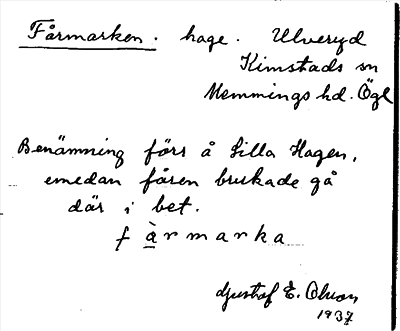 Fårmarken. hage. Ulveryd
Kimstads sn
Memmings hd. Ögl
Benämning förr å Lilla Hagen,
emedan fåren brukade gå
där i bet.
f à r m a r k a
Gustaf E. Olson
1937